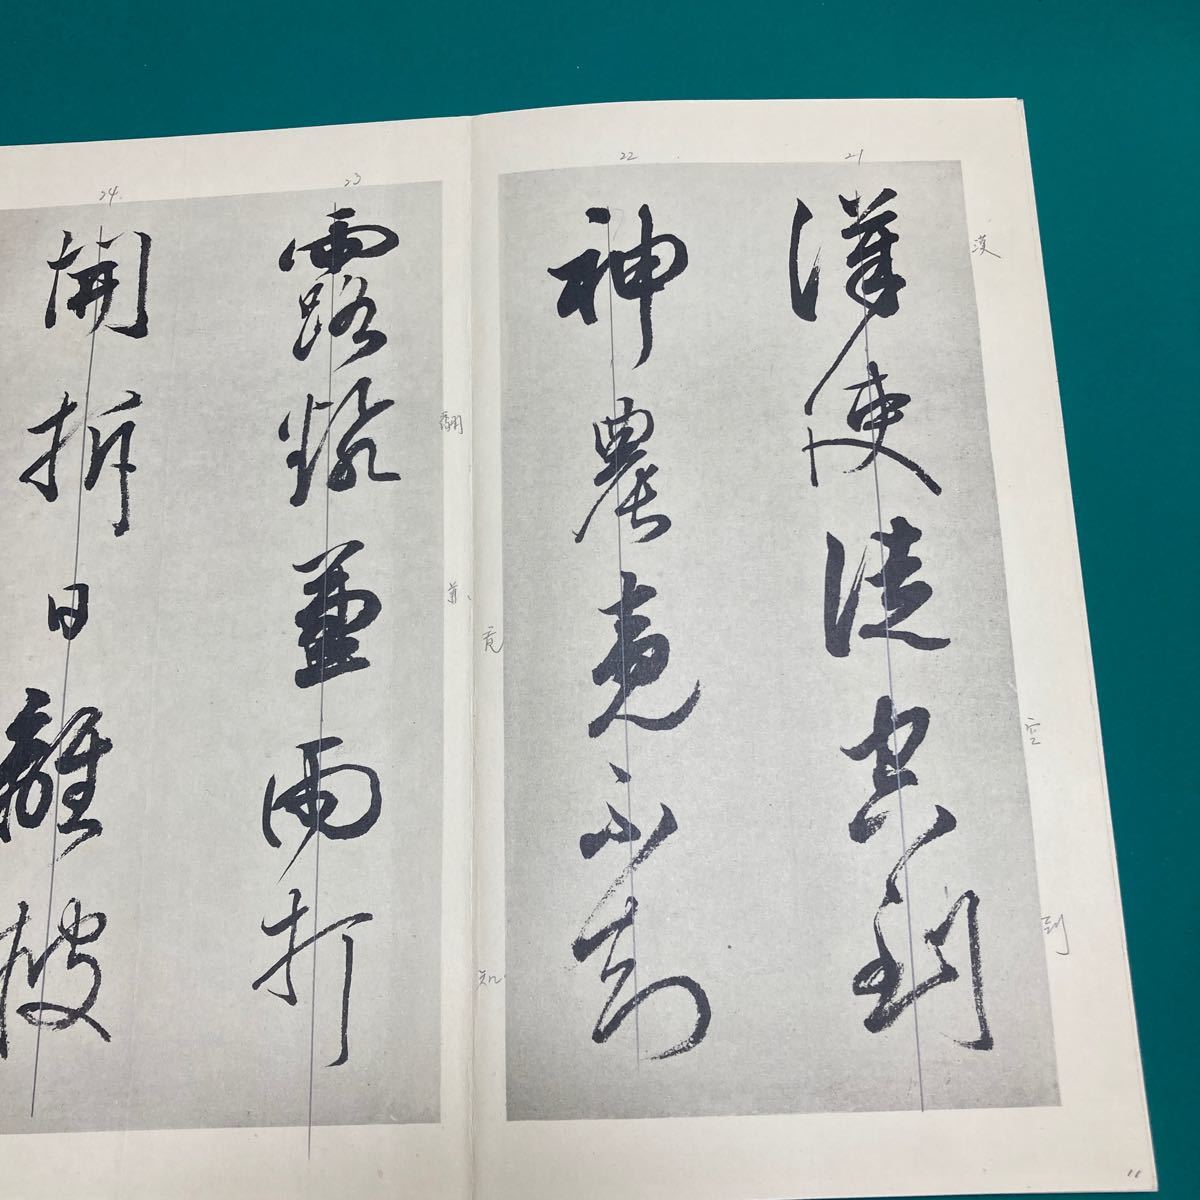 21
漢使徒空到
漢
空
到
22
神農竟不知
竟
知
23
露翻兼雨打
翻
兼
24
開拆日離披
11